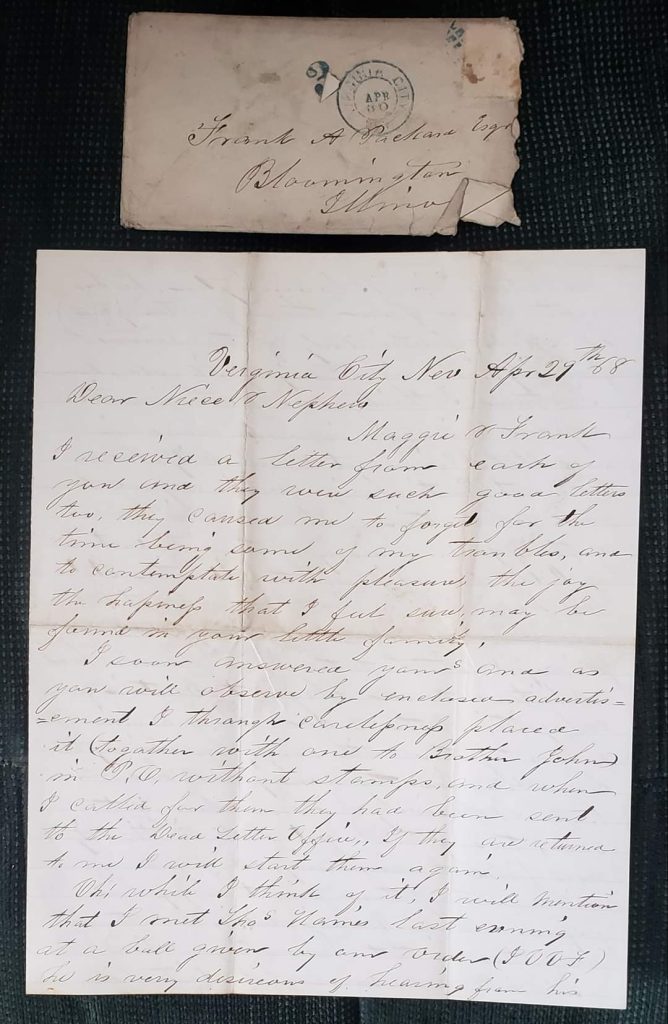 VIRGINIA CITY
APR
30
Frank A Packard Esqr
Bloomington
Illino
Virginia City Nev Apr 29th 68
Dear Niece & Nephew
Maggie & Frank
I received a letter from each of
you and they were such good letters
too, they caused me to forget for the
time being some of my troubles, and
to contemplate with pleasure, the joy
the hapiness that I feel sure, may be
found in your little family.
I soon answered yours and as
you will observe by enclosed advertis=
=ement I through carelessness placed
it (togather with one to Brother John)
in P.O. without stamps, and when
I called for them they had been sent
to the Dead Letter Office,, If they are returned
to me I will start them again.
Oh! while I think of it, I will mention
that I met Thos last evening
at a ball given by our order (I O O F)
he is very desireous of hearing from his